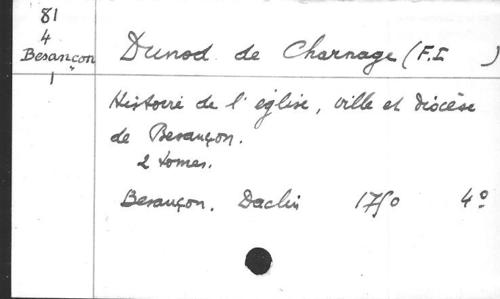 81
4
Besançon
1
Dunod de Charnage (F.I )
Histoire de l'église, ville et diocèse
de Besançon.
2 tomes.
Besançon. Daclin 1750 4º